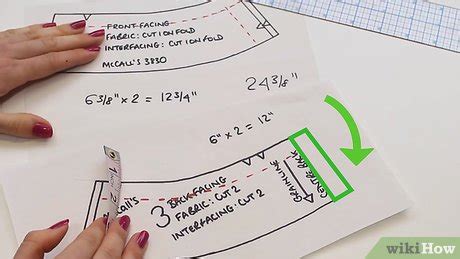 FRONT FACING
FABRIC: CUT 1 ON FOLD
INTERFACING: CUT 1 ON FOLD
McCALL'S 3830
6 3/8" x 2 = 12 3/4"
24 3/8"
6" x 2 = 12"
CENTRE BACK
GRAINLINE
3
BACK FACING
FABRIC: CUT 2
INTERFACING: CUT 2
wikiHow